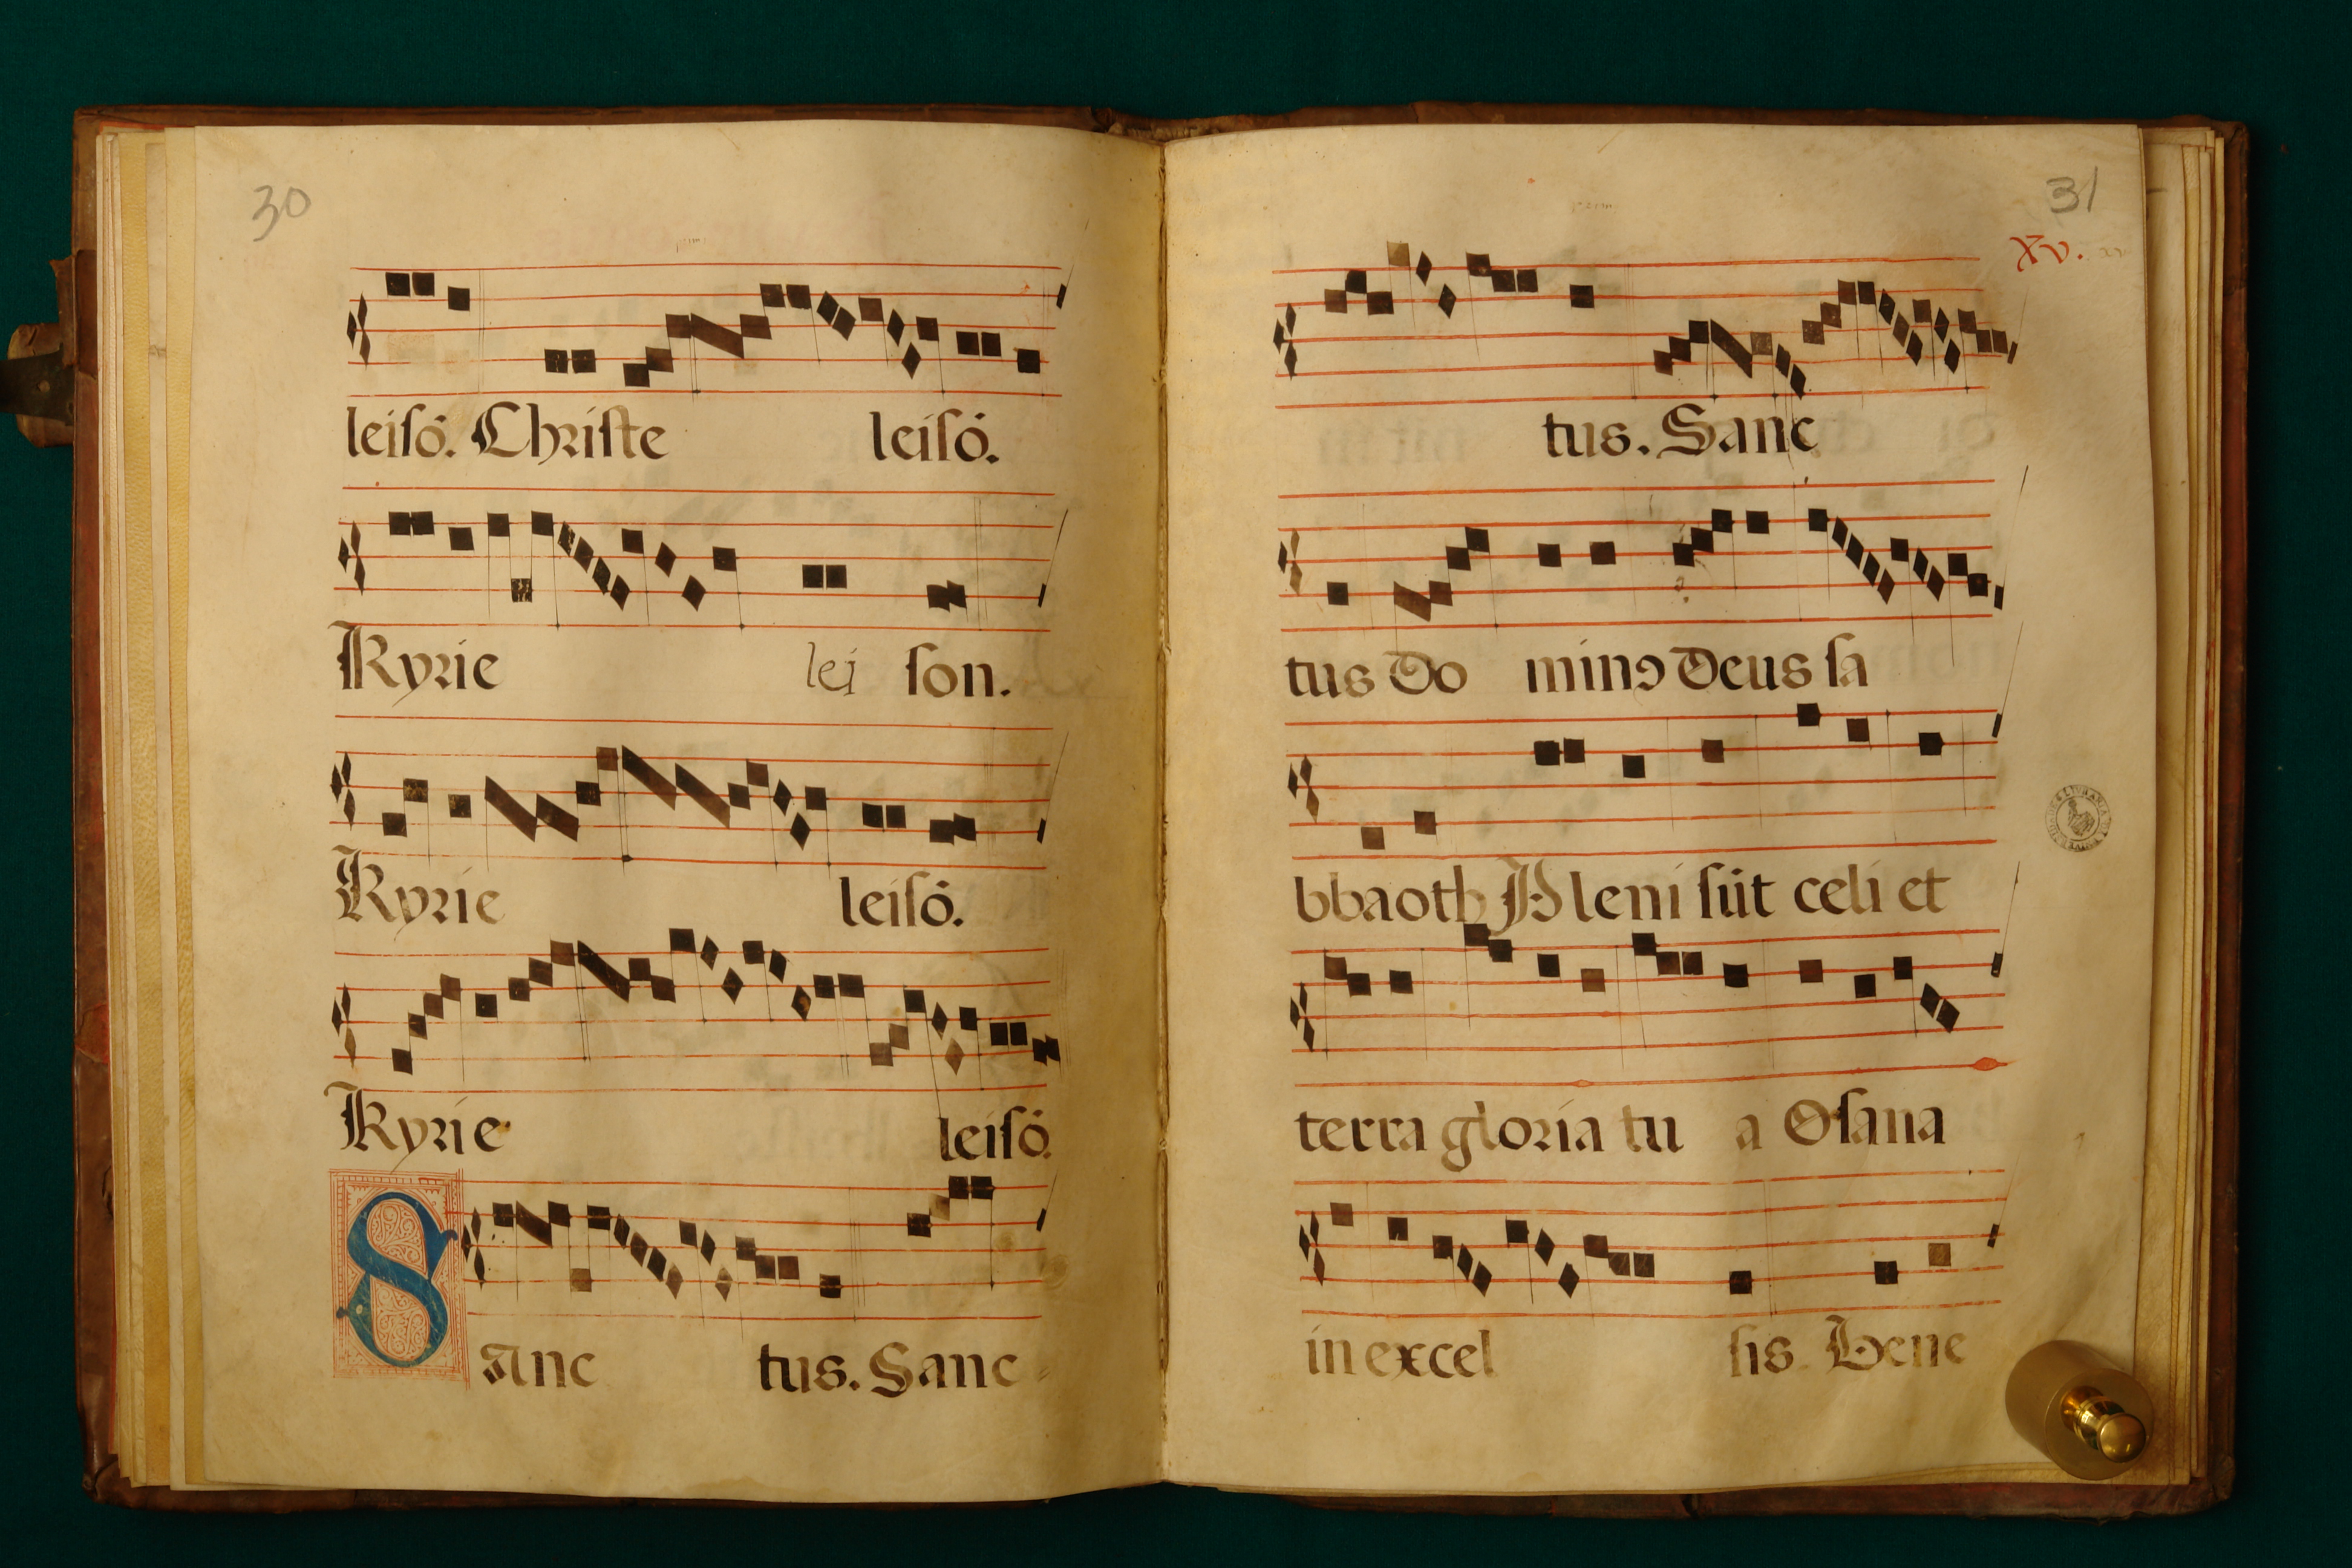 30
leisō. Christe leisō.
Kyrie lei son.
Kyrie leisō.
Kyrie leisō.
Sanc tus. Sanc
31
xv.
tus. Sanc
tus Do minꝯ Deus sa
bbaoth Pleni sūt celi et
terra gloria tu a Osana
in excel sis. Bene